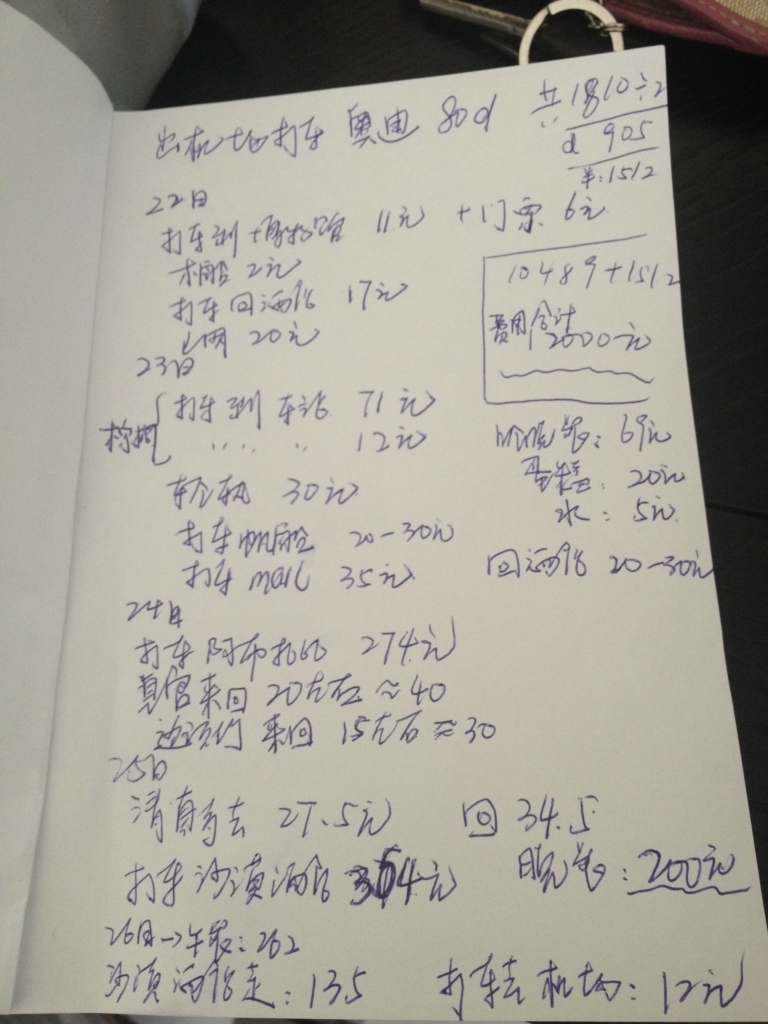 出机场打车 奥迪 80d
共1810÷2
d 905
￥:1512
22日
打车到博物馆 11元 +门票 6元
木船 2元
打车回酒店 17元
上网 20元
10489+1512
费用合计
12000元
23日
打车到车站 71元
棕榈 〃 〃 〃 12元
轻轨 30元
打车帆船 20-30元
打车 mall 35元
晚餐: 69元
蛋糕: 20元
水: 5元
回酒店 20-30元
24日
打车阿布扎比 274元
皇宫来回 20左右 ≈40
来回 15左右 ≈30
25日
清真寺去 27.5元 回 34.5
打车沙漠酒店 354元 晚餐: 200元
26日→午餐: 262
沙漠酒店走: 135 打车去机场: 12元